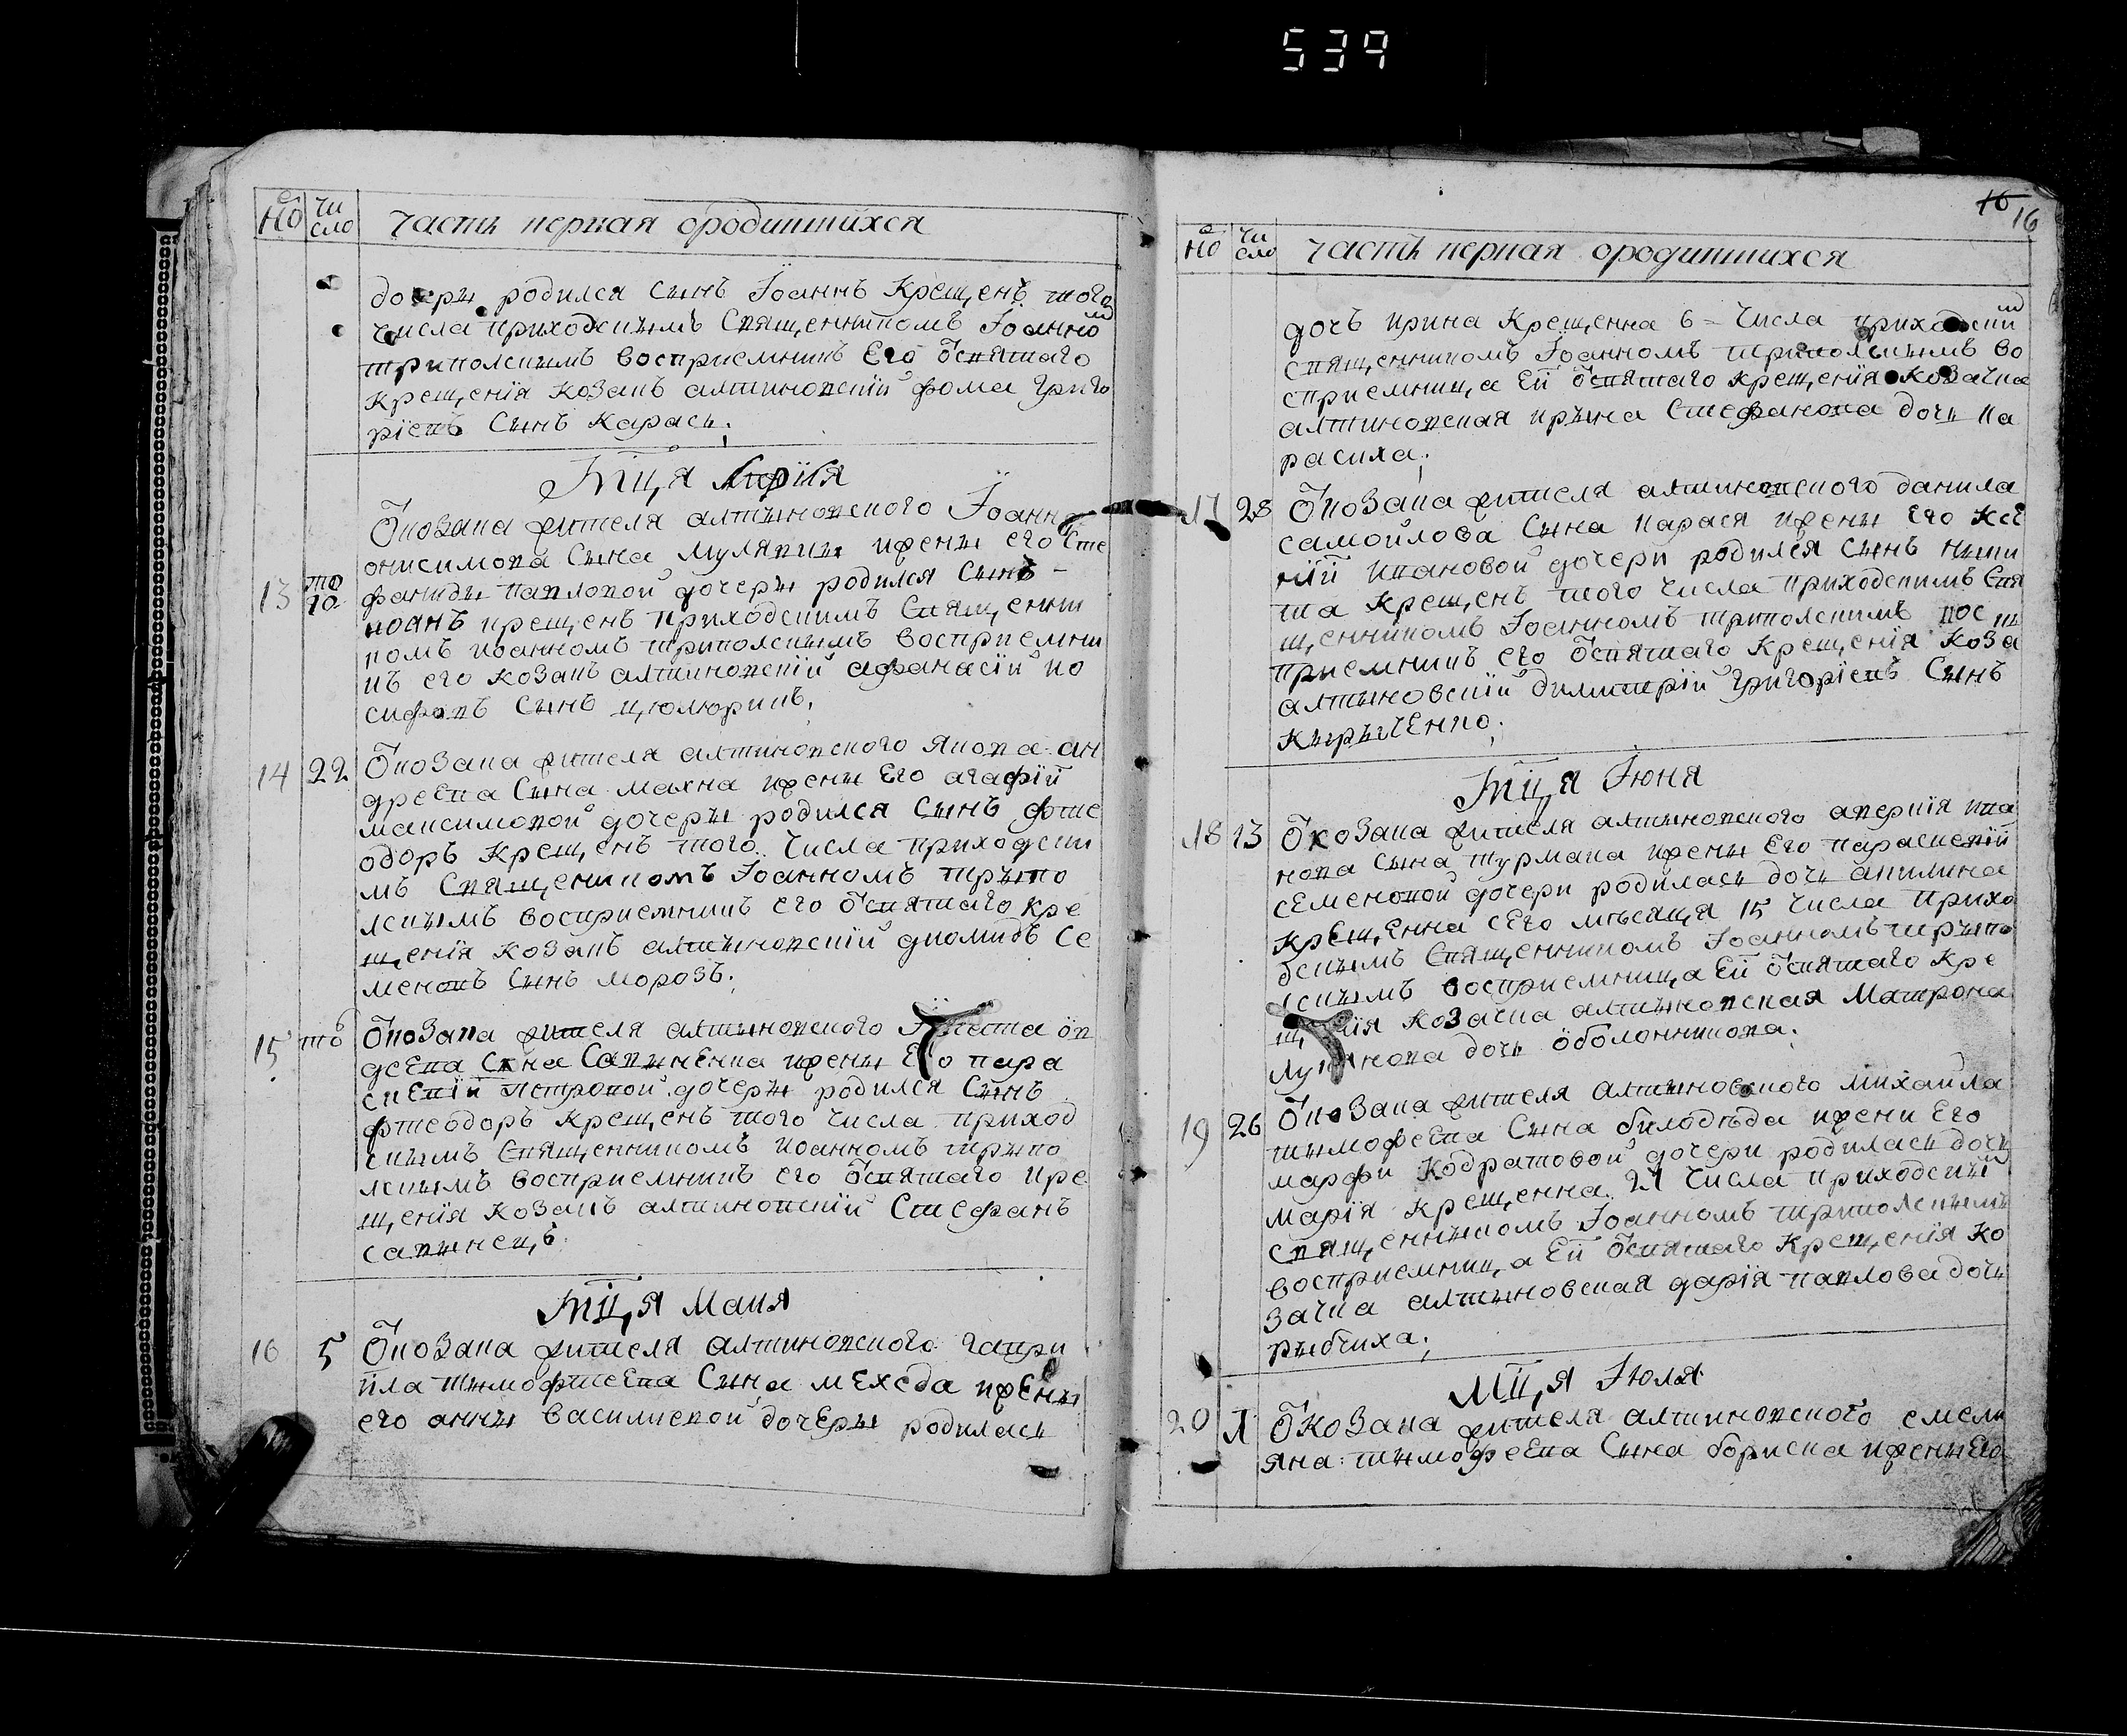 539
но
чи
сло
часть первая ородившихся
дочеры родился Сынъ Іоаннъ Крещенъ того
числа приходскымъ Священникомъ Іоанно
трипольскимъ восприемникъ Его ѿсвятаго
крещенія козакъ алтиновскій фома григо
ріевъ Сынъ карась;
Мця Апріля
Ѹ козака жителя алтыновского Іоанна
онисимова Сына мулявки жены его Сте
13 то 10 фаниды павловой дочеры родился Сынъ
иоанъ крещенъ приходскимъ Священи
комъ иоанномъ трипольскымъ восприемни
къ его козакъ алтиновскій афанасій ио
сифовъ Сынъ цюлюрикъ,
14 22 Ѹ козака жителя алтиновского якова ан
дреева Сына махна жены Его агафій
максимовой дочеры родился Сынъ фте
одоръ Крещенъ того числа приходски
мъ Священикомъ Іоанномъ трыпо
лскымъ восприемникъ его ѿсвятаго кре
щенія козакъ алтыновскій диомидъ Се
меновъ Сынъ морозъ;
15 то Ѹ козака жителя алтыновского ѿв
дсева Сына Сапыненка жены Его пара
скевій петровой дочеры родился Сынъ
фтеодоръ Крещенъ того числа приход
скымъ Священникомъ иоанномъ трыпо
лскымъ восприемникъ его ѿсвятаго кре
щенія козакъ алтиновскій Стефанъ
сапынецъ
Мця Маия
16 5 Ѹ козака жителя алтиновского гаври
ила тымофтеева Сына мехеда жены
его анны василиевой дочеры родилась
16
16
но
чи
сло
часть первая ородившихся
дочъ ирина Крещенна 6 = числа приходски
священникомъ Іоанномъ трипольскымъ во
сприемница Ей ѿсвятаго крещенія козачка
алтиновская ирына Стефанова дочь ка
расиха;
17 28 Ѹ козака жителя алтиновского данила
самойлова Сына карася жены Его Ксе
ній ивановой дочери родился Сынъ ники
та Крещенъ того числа приходскимъ Свя
щенникомъ Іоанномъ трипольскимъ вос
приемникъ его ѿсвятаго Крещенія коза
алтыновскій димитрій григоріевъ Сынъ
кырыченко;
Мця Іюня
18 13 Ѹ козака жителя алтыновского аверкія ива
нова Сына турмана жены Его параскевій
семеновой дочери родилась дочь акилина
крещенна сего мѣсяця 15 числа прихо
дскымъ Священникомъ Іоанномъ трыпо
лскымъ восприемница Ей ѿсвятаго Кре
щенія козачка алтыновская Матрона
лукянова дочь оболонникова;
19 26 Ѹ козака жителя алтыновского михаила
тымофеева Сына билодѣда жени Его
марфи Кодратовой дочери родилась дочь
марія крещенна 27 числа приходскій
священныкомъ Іоанномъ трипольскымъ
восприемница Ей ѿсвятаго Крещенія ко
зачка алтыновская дарія павлова дочь
рыбчиха;
Мця Іюля
20 Ѹ козака жителя алтиновского емели
яна тымофеева Сына бориска жены Его